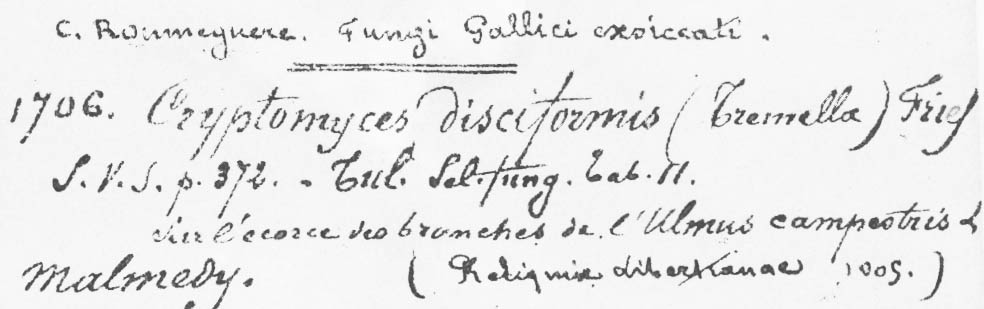 C. Roumeguere. Fungi Gallici exsiccati.
1706. Cryptomyces disciformis (Tremella) Fries
S. V. S. p. 372. - Tul. Sel. fung. Tab. 11.
Sur l'écorce des branches de l'Ulmus campestris à
Malmedy. (Reliquiæ Libertianae 1005.)